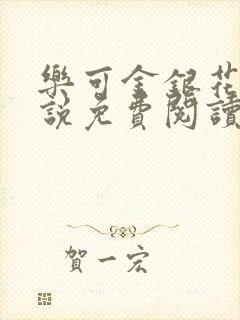 樂可金銀花
說免費閱讀
賀一宏